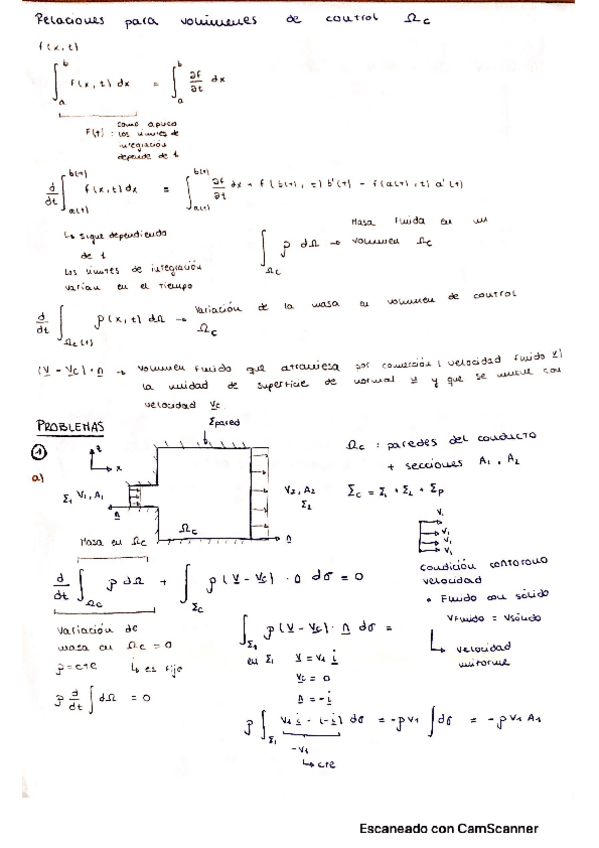 Relaciones para volúmenes de control Ωc
f(x,t)
∫_a^b f(x,t) dx = ∫_a^b ∂f/∂t dx
F(t) : como aparece los límites de integración depende de t
d/dt ∫_a(t)^b(t) f(x,t) dx = ∫_a(t)^b(t) ∂f/∂t dx + f(b(t), t) b'(t) - f(a(t), t) a'(t)
↳ sigue dependiendo de t
Los límites de integración varían en el tiempo
∫_Ωc ρ dΩ → Masa fluida en un volumen Ωc
d/dt ∫_Ωc(t) ρ(x,t) dΩ → Variación de la masa en volumen de control Ωc
(v - vc)·n → volumen fluido que atraviesa por convección (velocidad fluido v)
la unidad de superficie de normal n y que se mueve con
velocidad vc.
PROBLEMAS
① a)
z
x
Σpared
Σ1 V1, A1
n
Ωc
V2, A2
Σ2
n
Ωc : paredes del conducto
+ secciones A1, A2
Σc = Σ1 + Σ2 + Σp
V1
V1
V1
V1
Condición contorno
velocidad
• Fluido con sólido
Vfluido = Vsólido
↳ velocidad
uniforme
Masa en Ωc
d/dt ∫_Ωc ρ dΩ + ∫_Σc ρ(v - vc)·n dσ = 0
Variación de
masa en Ωc = 0
ρ = cte ↳ es fijo
ρ d/dt ∫ dΩ = 0
∫_Σ1 ρ(v - vc)·n dσ =
en Σ1 v = v1 i
vc = 0
n = -i
ρ ∫_Σ1 v1 i · (-i) dσ = -ρv1 ∫ dσ = -ρ v1 A1
-v1
↳ cte
Escaneado con CamScanner